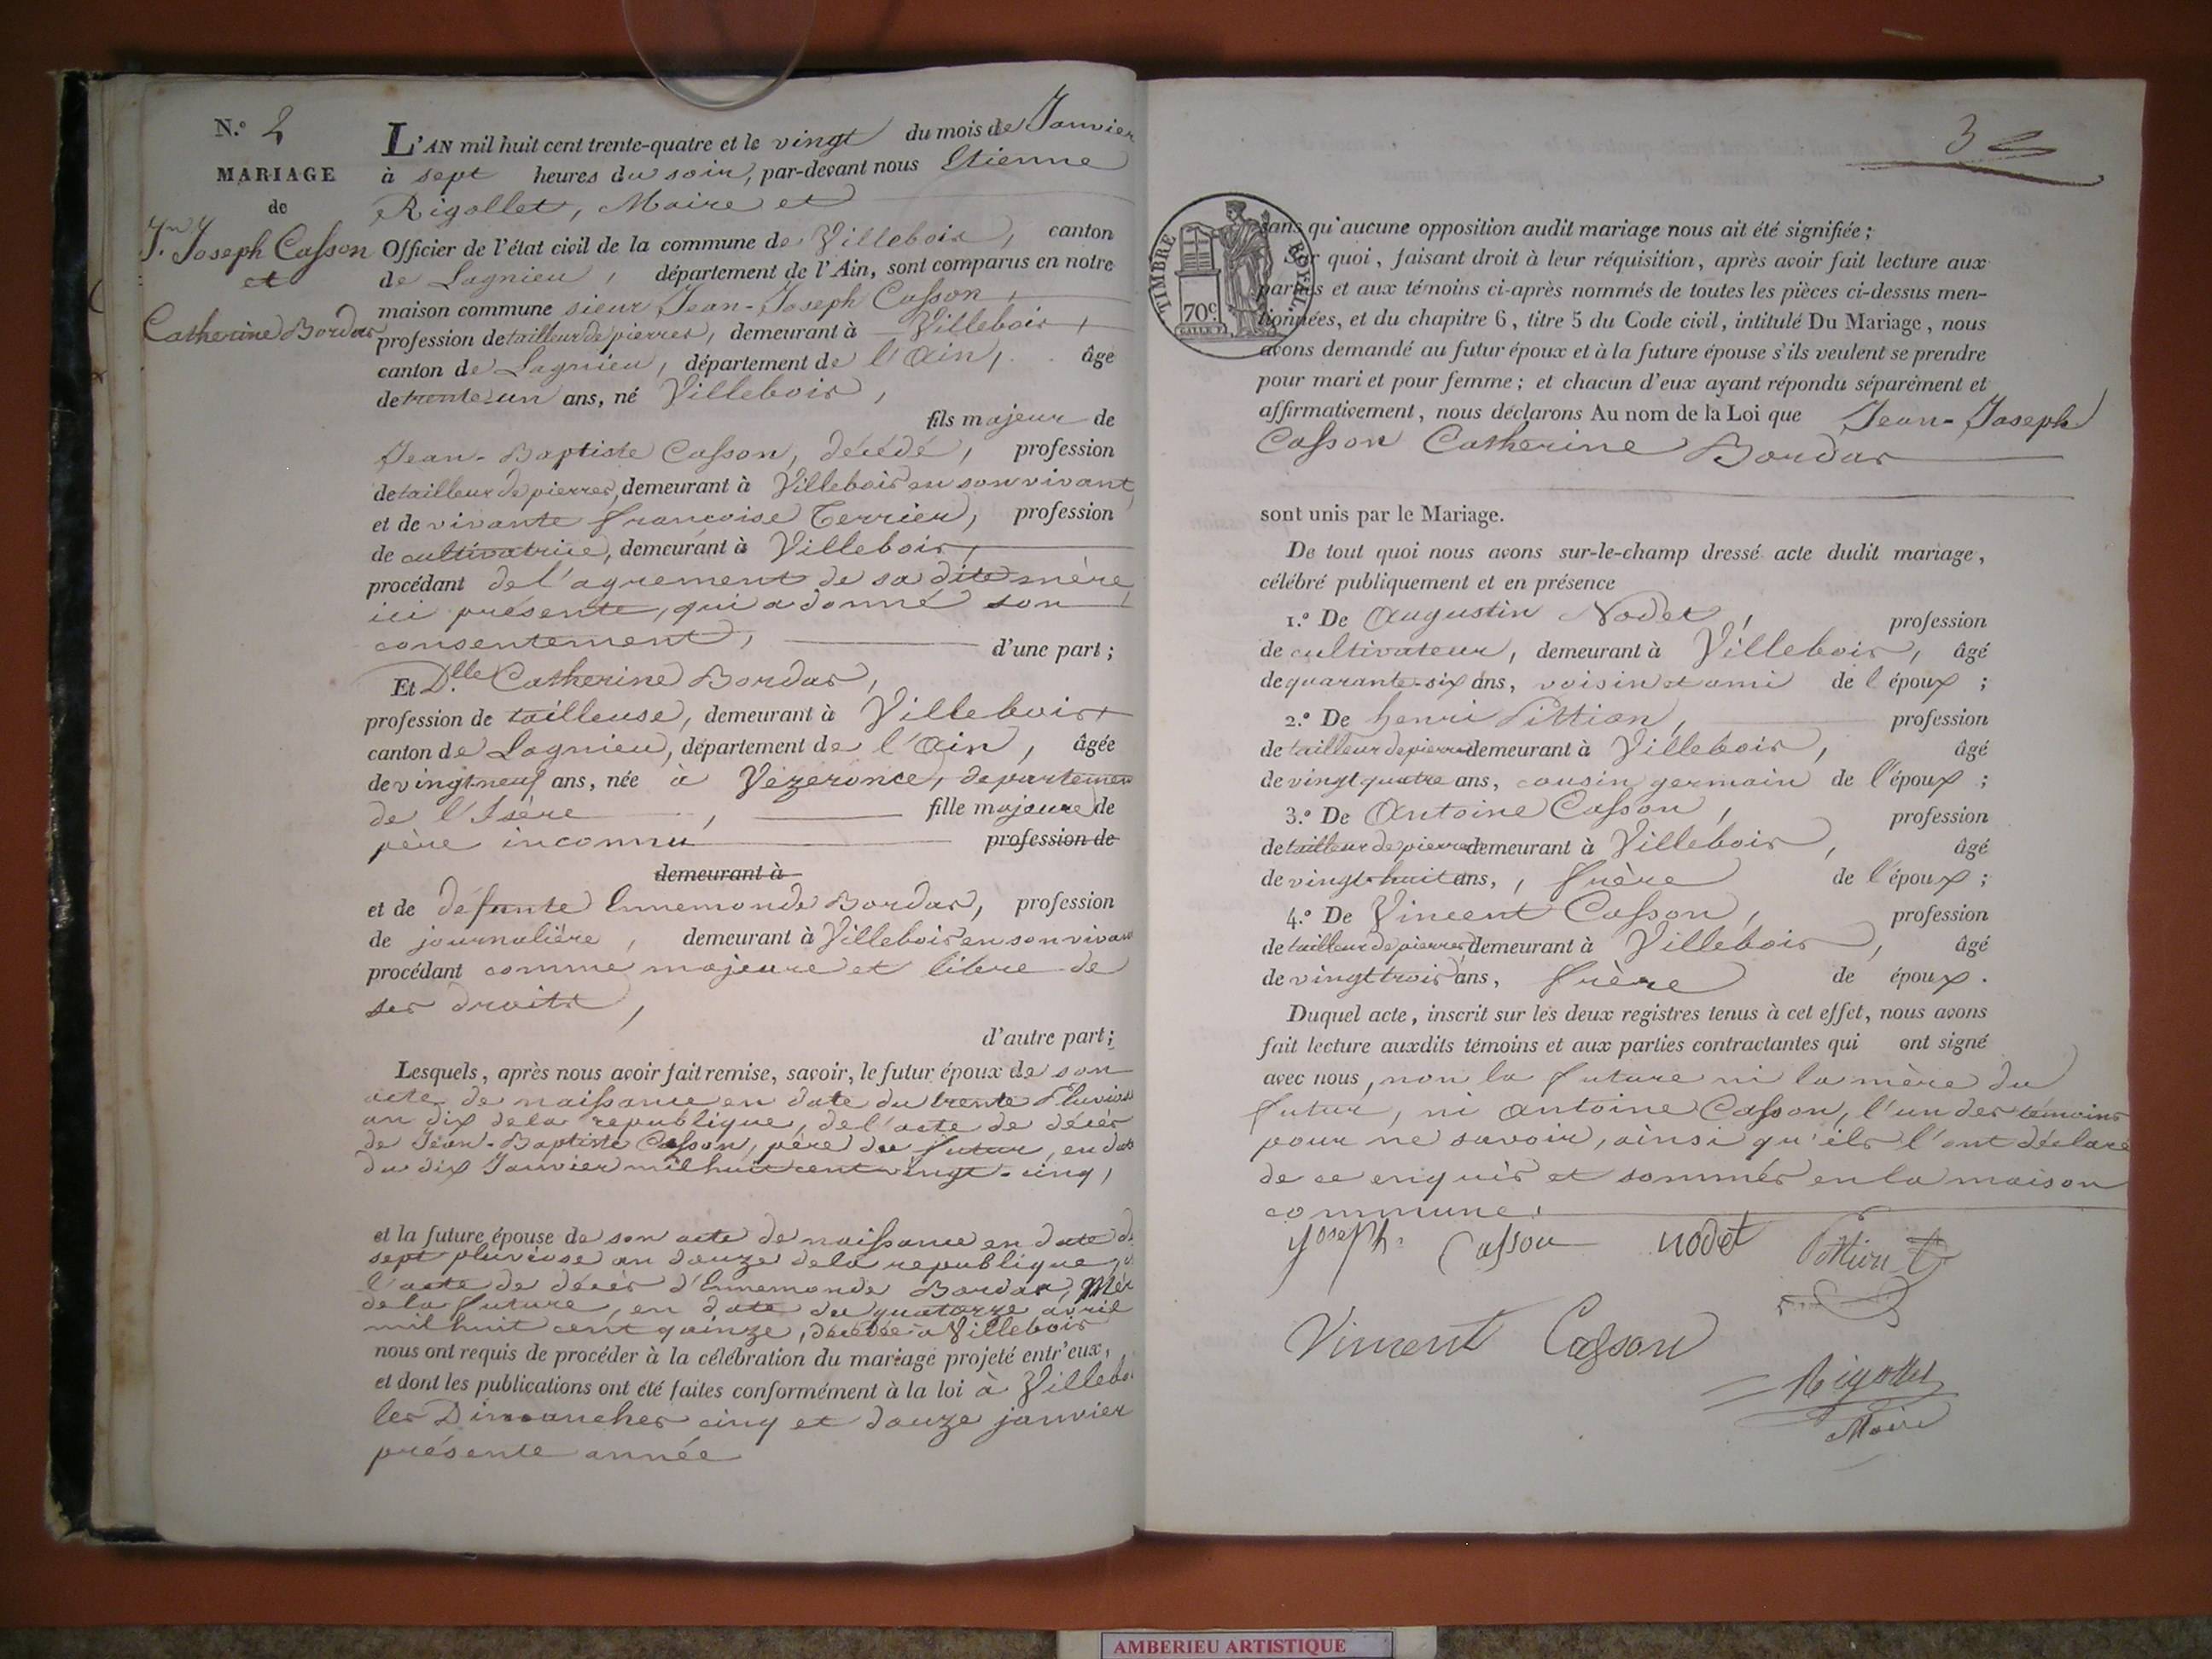 N.º 2
MARIAGE
de
Jn. Joseph Casson
et
Catherine Bordas
L'AN mil huit cent trente-quatre et le vingt du mois de Janvier
à sept heures du soir, par-devant nous Etienne
Rigollet, Maire et
Officier de l'état civil de la commune de Villebois, canton
de Lagnieu, département de l'Ain, sont comparus en notre
maison commune sieur Jean-Joseph Casson,
profession de tailleur de pierres, demeurant à Villebois,
canton de Lagnieu, département de l'Ain, âgé
de trente-un ans, né Villebois,
fils majeur de
Jean-Baptiste Casson, décédé, profession
de tailleur de pierres, demeurant à Villebois en son vivant,
et de vivante françoise Terrier, profession
de cultivatrice, demeurant à Villebois,
procédant de l'agrement de sa dite mère
ici présente, qui a donné son
consentement, d'une part;
Et Dlle Catherine Bordas,
profession de tailleuse, demeurant à Villebois,
canton de Lagnieu, département de l'Ain, âgée
de vingt-neuf ans, née à Vézeronce, departemen
de l'Isère, fille majeure de
père inconnu profession de
demeurant à
et de défunte Ennemonde Bordas, profession
de journalière, demeurant à Villebois en son vivan
procédant comme majeure et libre de
ses droits,
d'autre part;
Lesquels, après nous avoir fait remise, savoir, le futur époux de son
acte de naissance en date du trente Pluviose
an dix de la republique, de l'acte de décès
de Jean-Baptiste Casson, père du futur, en date
du dix Janvier mil huit cent vingt-cinq,
et la future épouse de son acte de naissance en date du
sept pluviose an douze de la republique,
l'acte de décès d'Ennemonde Bordas, Mèr
de la future, en date du quatorze avril
mil huit cent quinze, décédée à Villebois
nous ont requis de procéder à la célébration du mariage projeté entr'eux,
et dont les publications ont été faites conformément à la loi à Villebo
les Dimanches cinq et douze janvier
présente année
3
TIMBRE ROYAL
70c
sans qu'aucune opposition audit mariage nous ait été signifiée;
Sur quoi, faisant droit à leur réquisition, après avoir fait lecture aux
parties et aux témoins ci-après nommés de toutes les pièces ci-dessus men-
tionnées, et du chapitre 6, titre 5 du Code civil, intitulé Du Mariage, nous
avons demandé au futur époux et à la future épouse s'ils veulent se prendre
pour mari et pour femme; et chacun d'eux ayant répondu séparément et
affirmativement, nous déclarons Au nom de la Loi que Jean-Joseph
Casson Catherine Bordas
sont unis par le Mariage.
De tout quoi nous avons sur-le-champ dressé acte dudit mariage,
célébré publiquement et en présence
1.º De Augustin Nodet, profession
de cultivateur, demeurant à Villebois, âgé
de quarante-six ans, voisin et ami de l'époux;
2.º De henri Pittion, profession
de tailleur de pierres demeurant à Villebois, âgé
de vingt-quatre ans, cousin germain de l'époux;
3.º De Antoine Casson, profession
de tailleur de pierres demeurant à Villebois, âgé
de vingt-huit ans, frère de l'époux;
4.º De Vincent Casson, profession
de tailleur de pierres demeurant à Villebois, âgé
de vingt trois ans, frère de époux.
Duquel acte, inscrit sur les deux registres tenus à cet effet, nous avons
fait lecture auxdits témoins et aux parties contractantes qui ont signé
avec nous, non la future ni la mère du
futur, ni Antoine Casson, l'un des témoins
pour ne savoir, ainsi qu'ils l'ont déclaré
de ce enquis et sommés en la maison
commune.
Joseph Casson nodet Pittion
Vincent Casson
Rigollet
Maire
AMBERIEU ARTISTIQUE